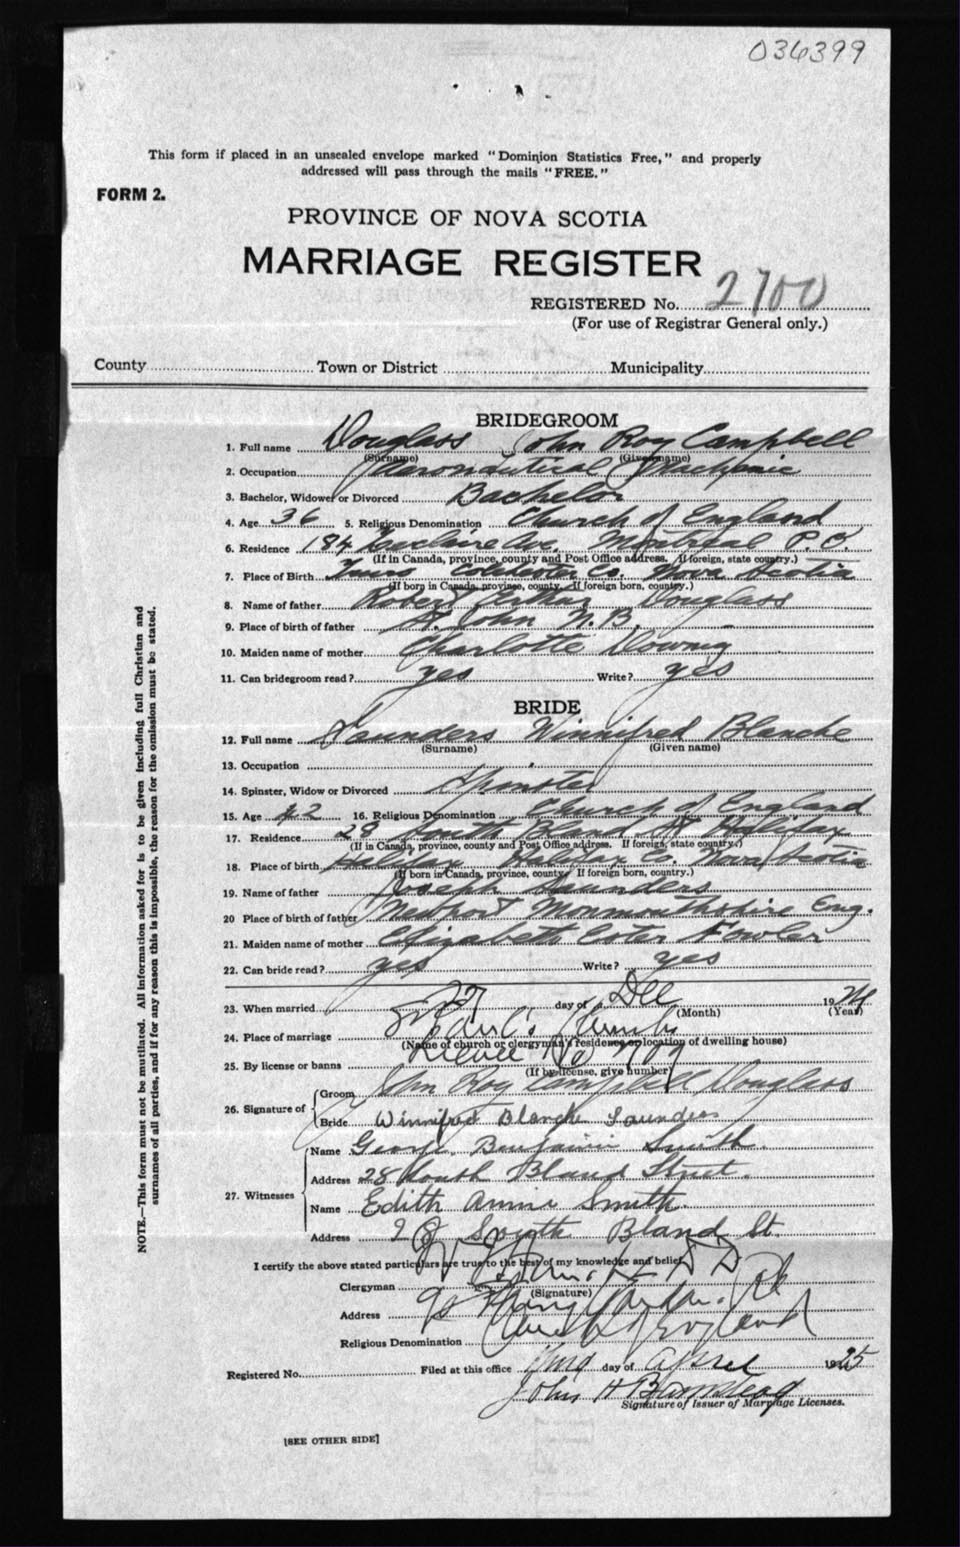 036399
This form if placed in an unsealed envelope marked "Dominion Statistics Free," and properly
addressed will pass through the mails "FREE."
FORM 2.
PROVINCE OF NOVA SCOTIA
MARRIAGE REGISTER
REGISTERED No. 2700
(For use of Registrar General only.)
County Town or District Municipality
BRIDEGROOM
1. Full name Douglass John Roy Campbell
(Surname) (Given name)
2. Occupation Aeronautical Mechanic
3. Bachelor, Widower or Divorced Bachelor
4. Age 36 5. Religious Denomination Church of England
6. Residence 184 Ave. Montreal P.Q.
(If in Canada, province, county and Post Office address. If foreign, state country.)
7. Place of Birth Truro Colchester Co. Nova Scotia
(If born in Canada, province, county. If foreign born, country.)
8. Name of father Robert Douglass
9. Place of birth of father St. John N.B.
10. Maiden name of mother Charlotte
11. Can bridegroom read? yes Write? yes
BRIDE
12. Full name Saunders Winnifred Blanche
(Surname) (Given name)
13. Occupation
14. Spinster, Widow or Divorced Spinster
15. Age 42 16. Religious Denomination Church of England
17. Residence 28 South Bland St Halifax
(If in Canada, province, county and Post Office address. If foreign, state country.)
18. Place of birth Halifax Halifax Co. Nova Scotia
(If born in Canada, province, county. If foreign born, country.)
19. Name of father Joseph Saunders
20 Place of birth of father Newport Monmouthshire Eng.
21. Maiden name of mother Elizabeth Ester Fowler
22. Can bride read? yes Write? yes
23. When married 27 day of Dec 1924
(Month) (Year)
24. Place of marriage St Paul's Church
(Name of church or clergyman's residence or location of dwelling house)
25. By license or banns License No 2709
(If by license, give number)
26. Signature of
Groom John Roy Campbell Douglass
Bride Winnifred Blanche Saunders
27. Witnesses
Name George Benjamin Smith.
Address 28 South Bland Street.
Name Edith Annie Smith.
Address 28 South Bland St.
I certify the above stated particulars are true to the best of my knowledge and belief.
Clergyman
(Signature)
Address
Religious Denomination Church of England
Registered No. Filed at this office day of April 1925
John H Barnstead
Signature of Issuer of Marriage Licenses.
[SEE OTHER SIDE]
NOTE.—This form must not be mutilated. All information asked for is to be given including full Christian and
surnames of all parties, and if for any reason this is impossible, the reason for the omission must be stated.